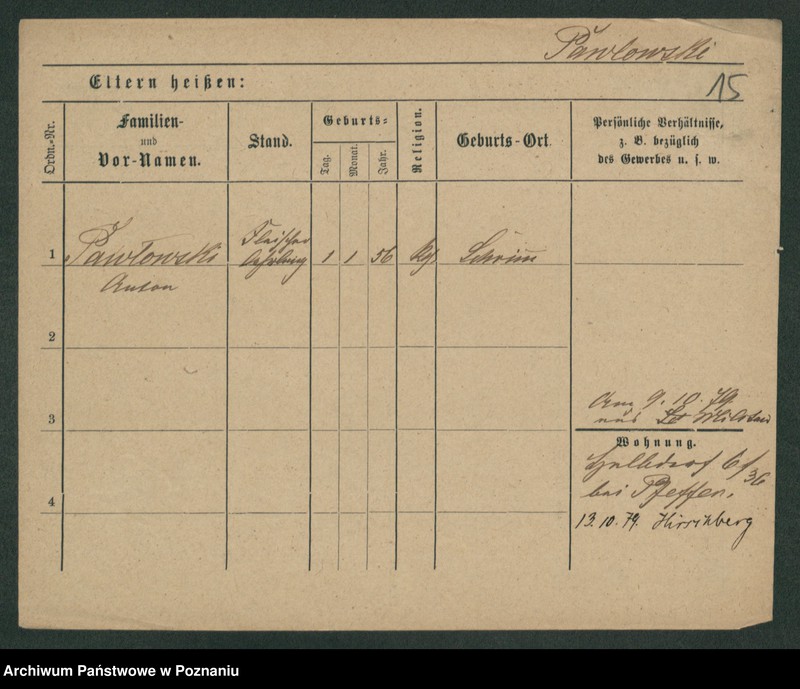 Pawlowski
Eltern heißen:
15
Ordn.-Nr.
Familien-
und
Vor-Namen.
Stand.
Geburts-
Tag.
Monat.
Jahr.
Religion.
Geburts-Ort.
Persönliche Verhältnisse,
z. B. bezüglich
des Gewerbes u. s. w.
1
Pawlowski
Anton
Fleischer
1
1
56
Schrimm
2
3
9. 10. 79
aus
Wohnung.
4
Halbdorf 6/36
bei Pfeffer.
13.10.79. Hirschberg
Archiwum Państwowe w Poznaniu